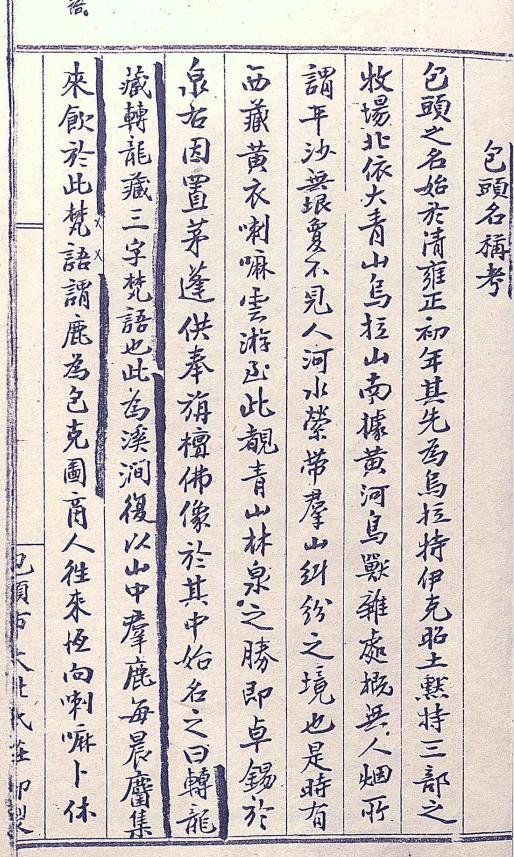 包頭名稱考
包頭之名始於清雍正初年其先為烏拉特伊克昭土黙特三部之
牧場北依大青山烏拉山南據黃河鳥獸雜處概無人烟所
謂平沙無垠敻不見人河水縈帶羣山糾紛之境也是時有
西藏黃衣喇嘛雲游至此覩青山林泉之勝即卓錫於
泉右因置茅蓬供奉旃檀佛像於其中始名之曰轉龍
藏轉龍藏三字梵語也此為溪澗復以山中羣鹿每晨麕集
來飲於此梵語謂鹿為包克圖商人往來恆向喇嘛卜休